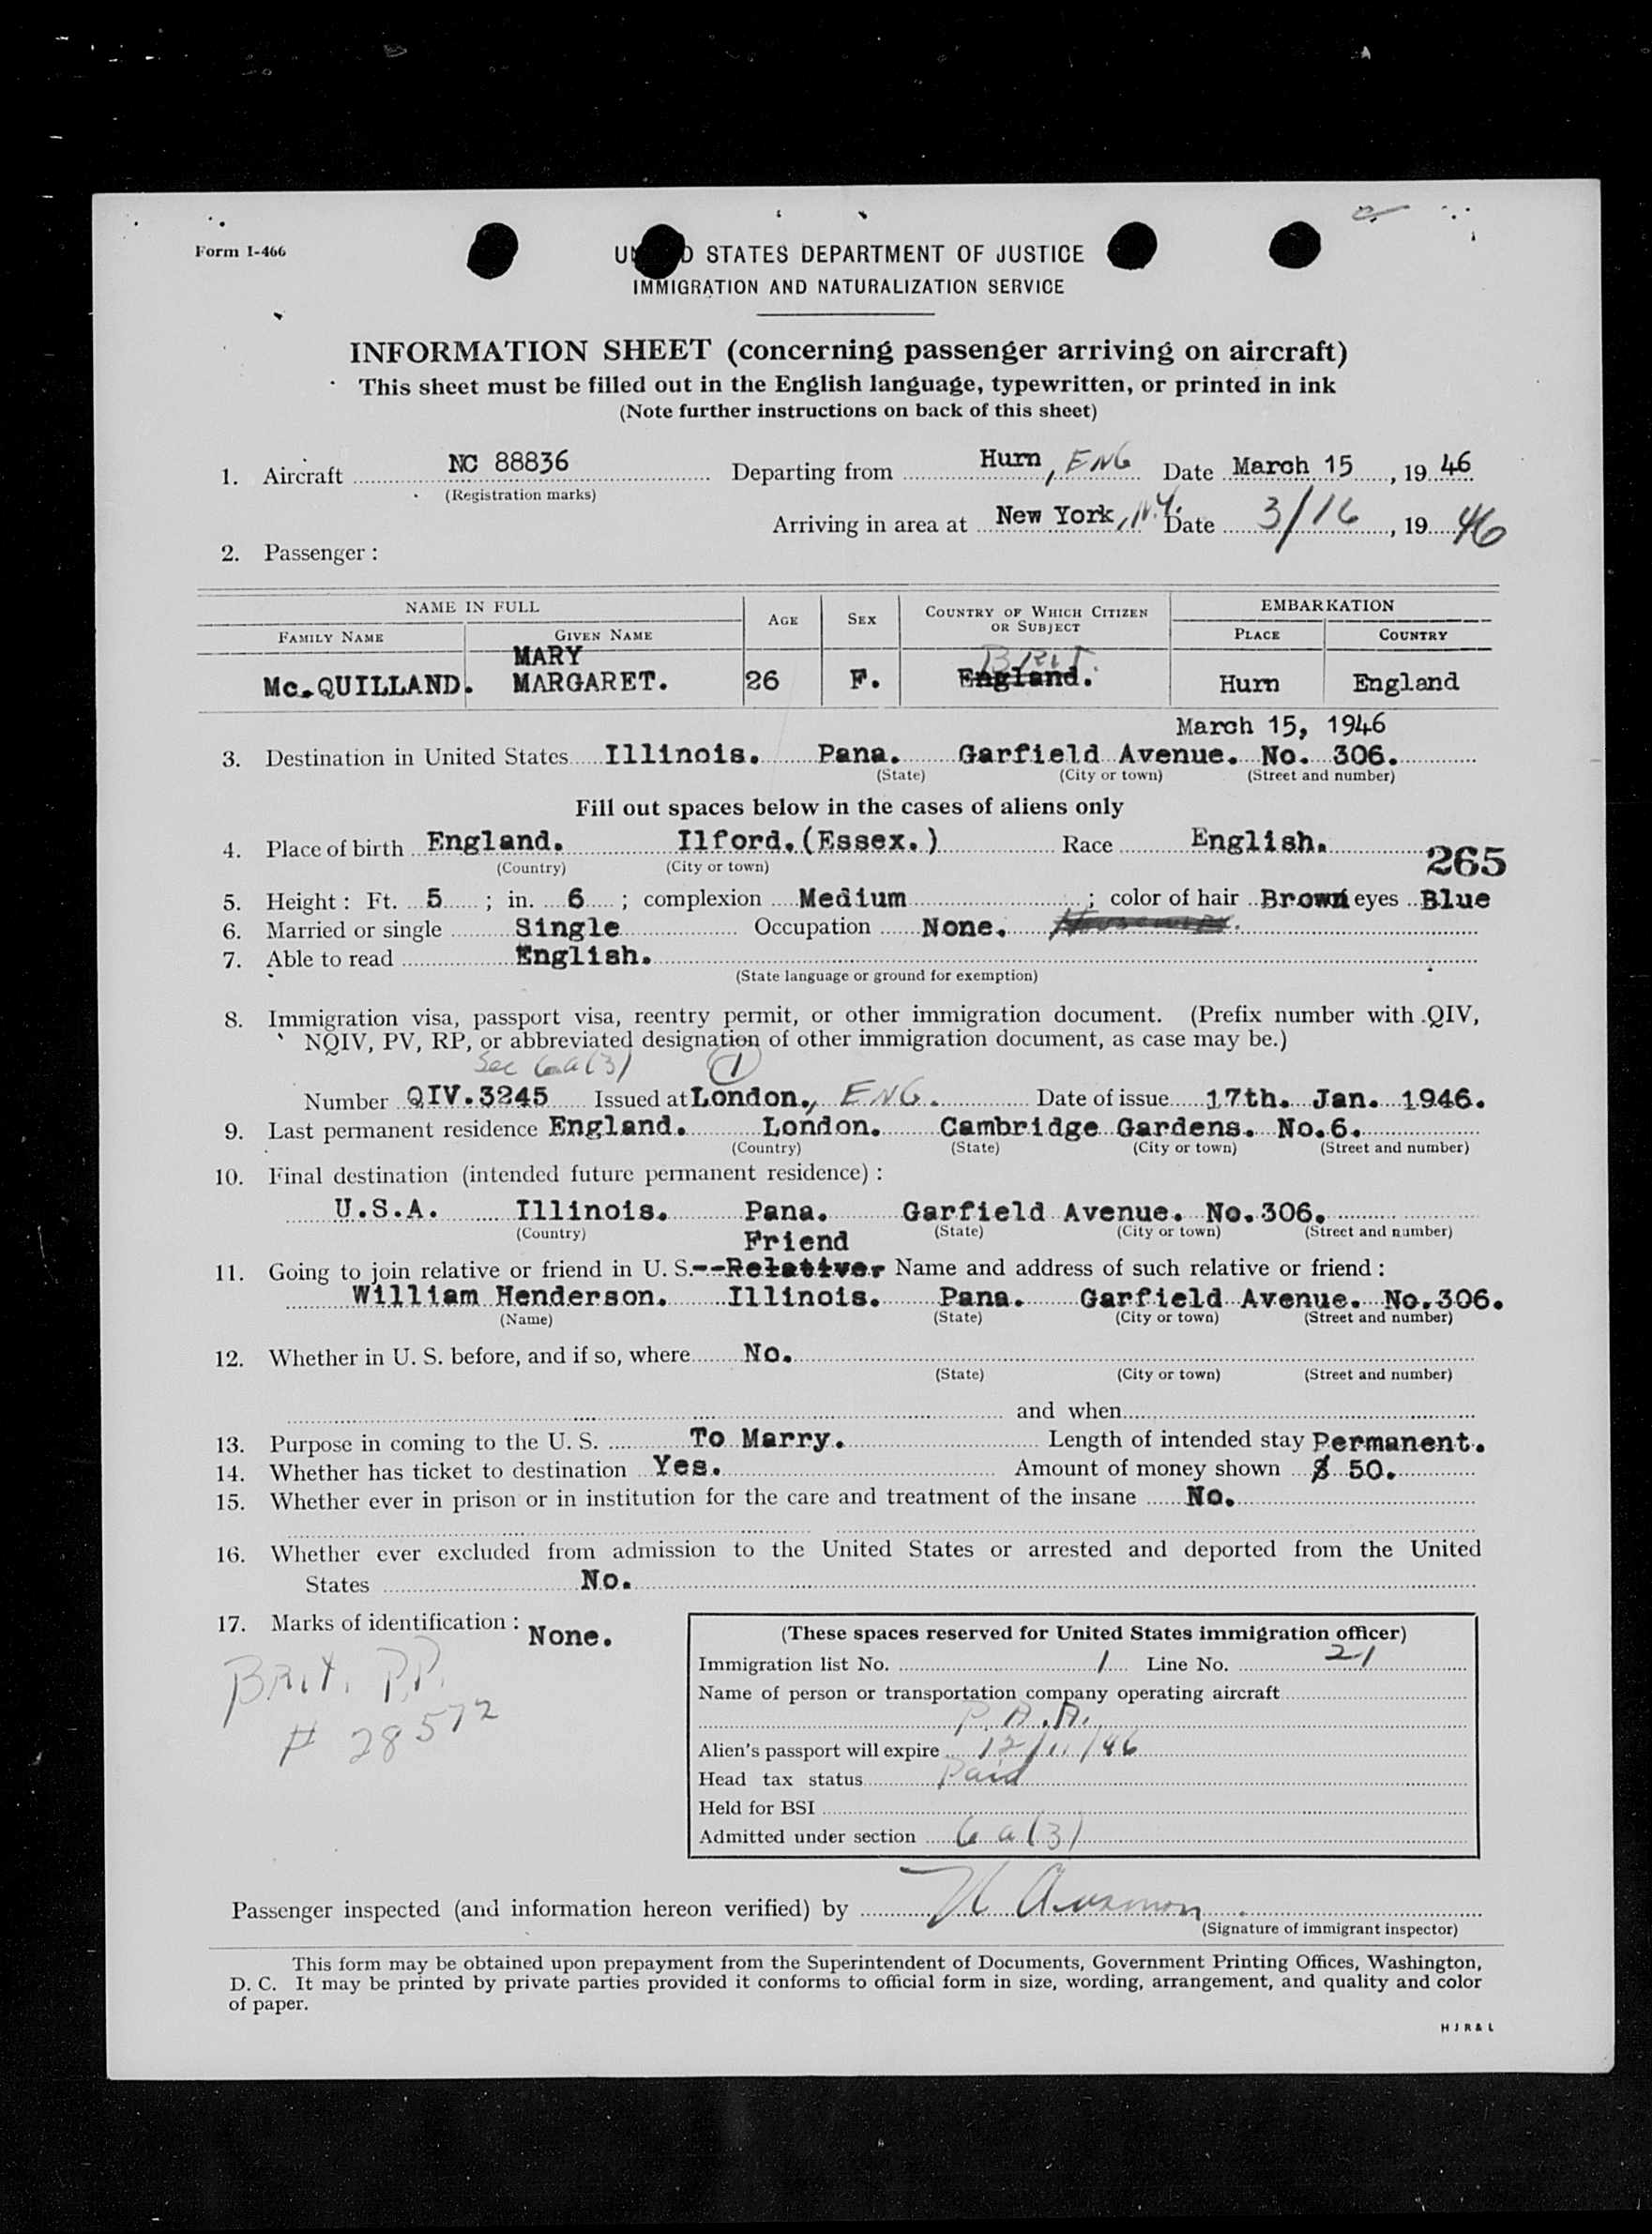 Form I-466
UNITED STATES DEPARTMENT OF JUSTICE
IMMIGRATION AND NATURALIZATION SERVICE
INFORMATION SHEET (concerning passenger arriving on aircraft)
This sheet must be filled out in the English language, typewritten, or printed in ink
(Note further instructions on back of this sheet)
1. Aircraft NC 88836 Departing from Hurn, ENG Date March 15, 19 46
(Registration marks)
Arriving in area at New York, N.Y. Date 3/16, 19 46
2. Passenger:
NAME IN FULL AGE SEX COUNTRY OF WHICH CITIZEN OR SUBJECT EMBARKATION
FAMILY NAME GIVEN NAME PLACE COUNTRY
MARY BRIT.
Mc.QUILLAND. MARGARET. 26 F. England. Hurn England
March 15, 1946
3. Destination in United States Illinois. Pana. Garfield Avenue. No. 306.
(State) (City or town) (Street and number)
Fill out spaces below in the cases of aliens only
4. Place of birth England. Ilford.(Essex.) Race English.
(Country) (City or town) 265
5. Height: Ft. 5; in. 6; complexion Medium; color of hair Brown eyes Blue
6. Married or single Single Occupation None.
7. Able to read English.
(State language or ground for exemption)
8. Immigration visa, passport visa, reentry permit, or other immigration document. (Prefix number with QIV,
NQIV, PV, RP, or abbreviated designation of other immigration document, as case may be.)
Sec 6a(3) 1
Number QIV.3245 Issued at London., ENG. Date of issue 17th. Jan. 1946.
9. Last permanent residence England. London. Cambridge Gardens. No.6.
(Country) (State) (City or town) (Street and number)
10. Final destination (intended future permanent residence):
U.S.A. Illinois. Pana. Garfield Avenue. No.306.
(Country) (State) (City or town) (Street and number)
Friend
11. Going to join relative or friend in U. S.--Relative. Name and address of such relative or friend:
William Henderson. Illinois. Pana. Garfield Avenue. No.306.
(Name) (State) (City or town) (Street and number)
12. Whether in U. S. before, and if so, where No.
(State) (City or town) (Street and number)
and when
13. Purpose in coming to the U. S. To Marry. Length of intended stay Permanent.
14. Whether has ticket to destination Yes. Amount of money shown $ 50.
15. Whether ever in prison or in institution for the care and treatment of the insane No.
16. Whether ever excluded from admission to the United States or arrested and deported from the United
States No.
17. Marks of identification: None.
BRIT. P.P.
# 28572
(These spaces reserved for United States immigration officer)
Immigration list No. 1 Line No. 21
Name of person or transportation company operating aircraft
P.A.A.
Alien's passport will expire 12/11/46
Head tax status Paid
Held for BSI
Admitted under section 6a(3)
Passenger inspected (and information hereon verified) by
(Signature of immigrant inspector)
This form may be obtained upon prepayment from the Superintendent of Documents, Government Printing Offices, Washington,
D. C. It may be printed by private parties provided it conforms to official form in size, wording, arrangement, and quality and color
of paper.
H J R & L